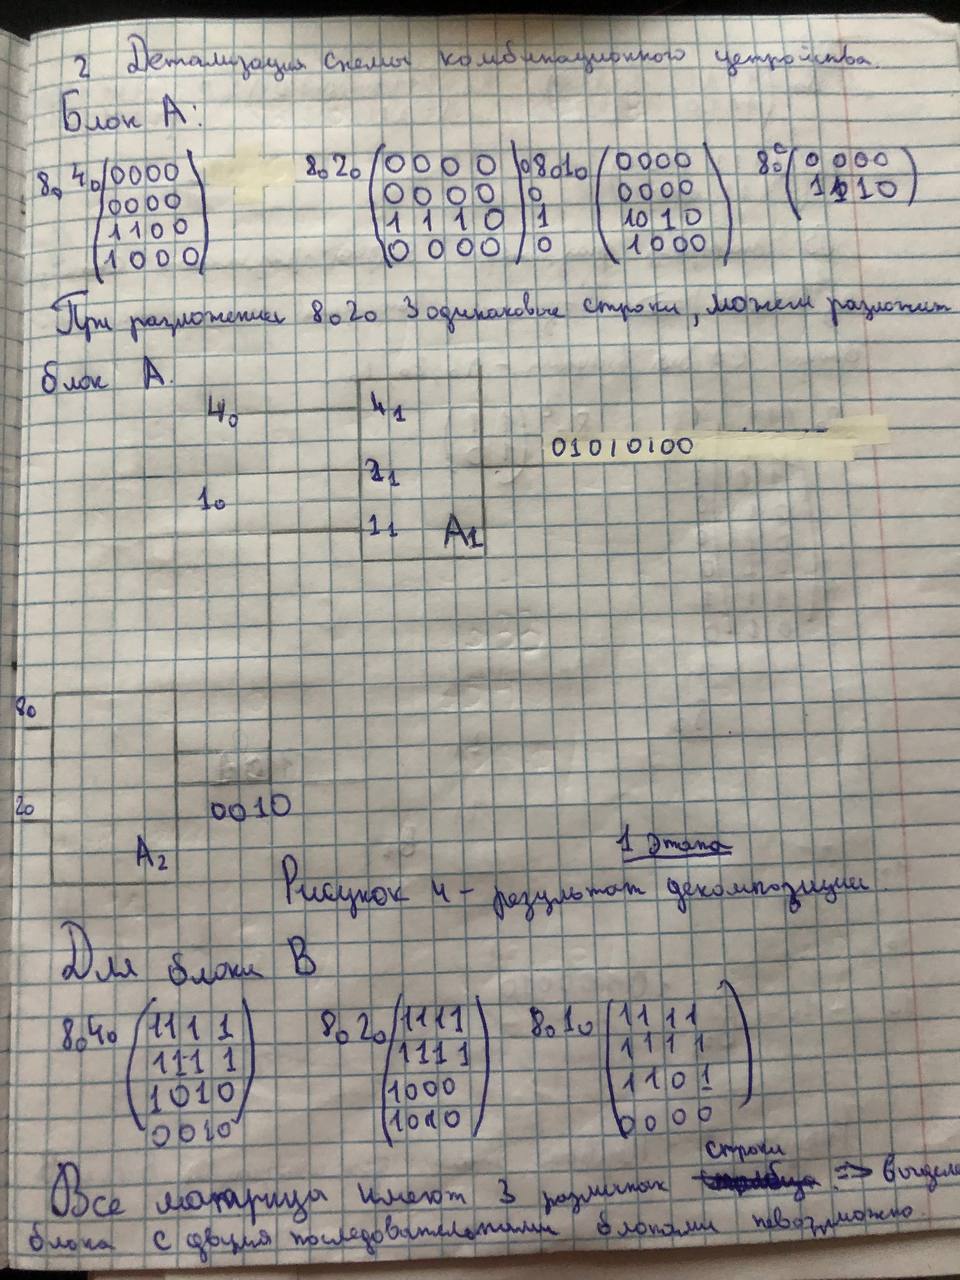 2 Детализация схемы комбинационного устройства.
Блок А:
8₀ 4₀ 0000 8₀2₀ 0000 0 8₀1₀ 0000 8₀ 0000
0000 0000 0 0000 1110
1100 1110 1 1010
1000 0000 0 1000
При разложении 8₀2₀ 3 одинаковые строки, можем разложит
блок А.
4₀ 4₁
01010100
2₁
1₀
1₁ А1
8₀
2₀
0010
А2
1 этапа
Рисунок 4 - результат декомпозиции
Для блока В
8₀4₀ 1111 8₀2₀ 1111 8₀1₀ 1111
1111 1111 1111
1010 1000 1101
0010 1010 0000
строки
Все матрица имеют 3 различных => выделе
блока с двумя последовательными блоками невозможно.